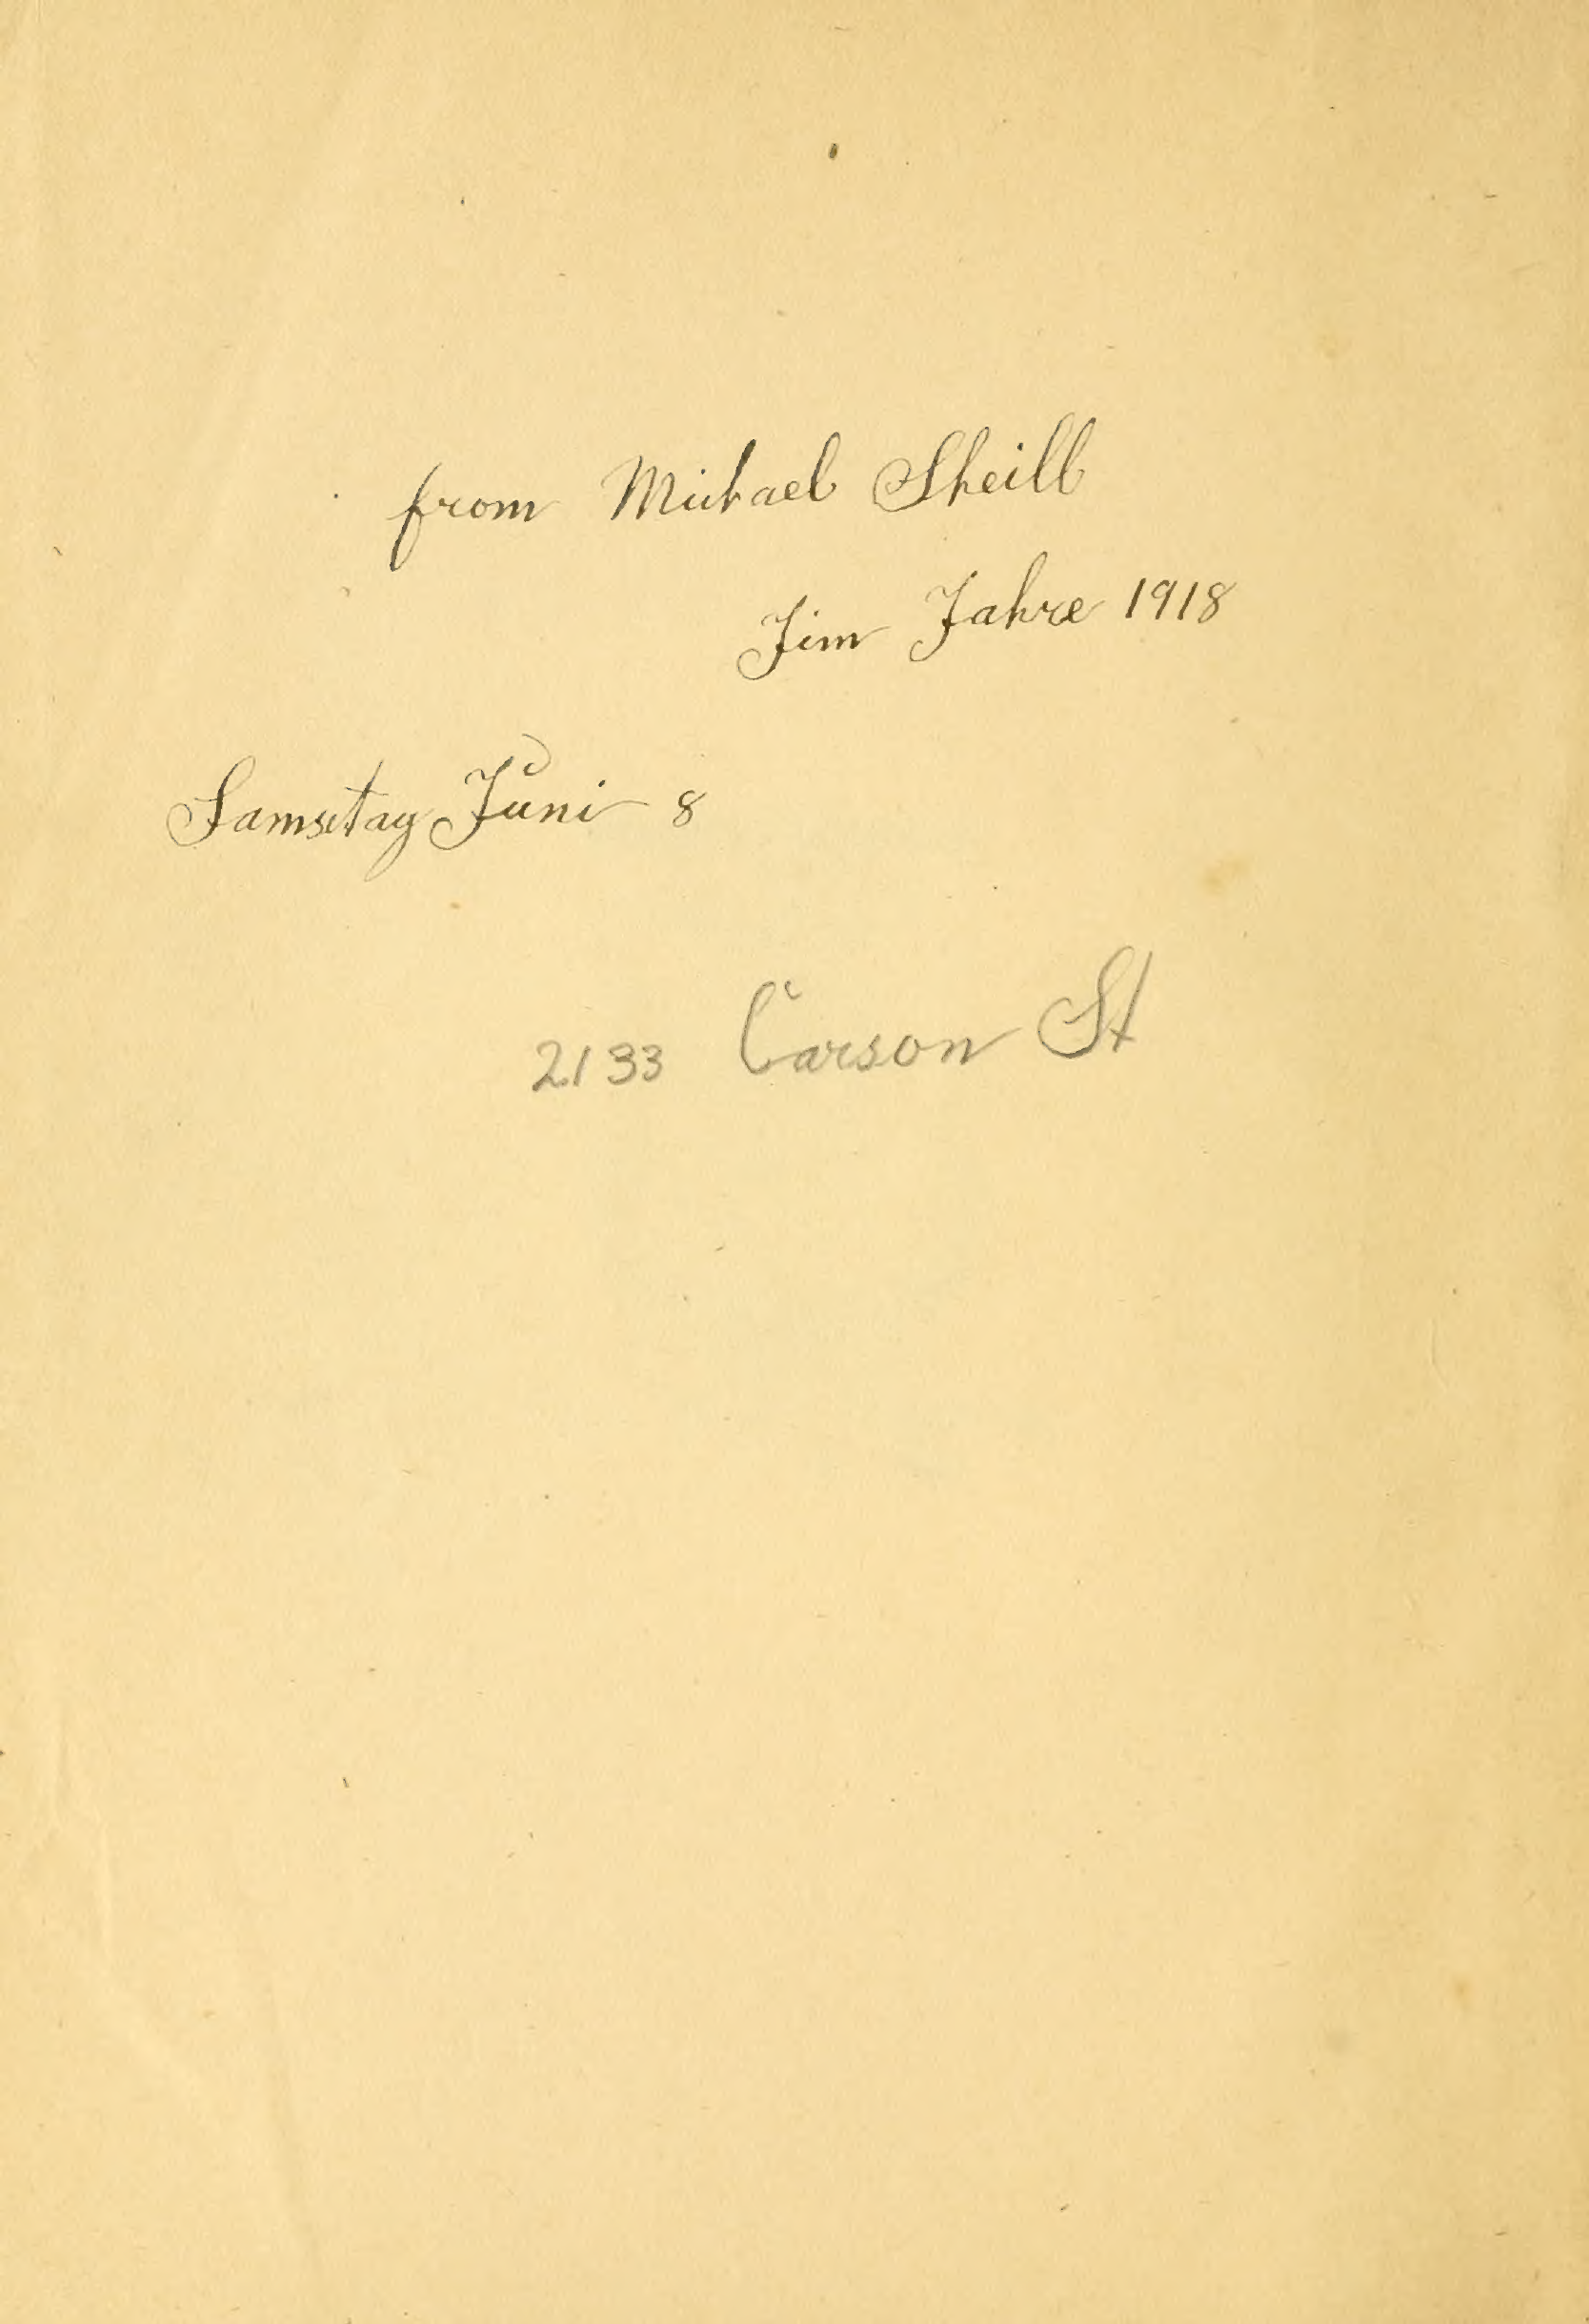 from Michael Sheill
Jim Jahre 1918
Samstag Juni 8
2133 Carson St